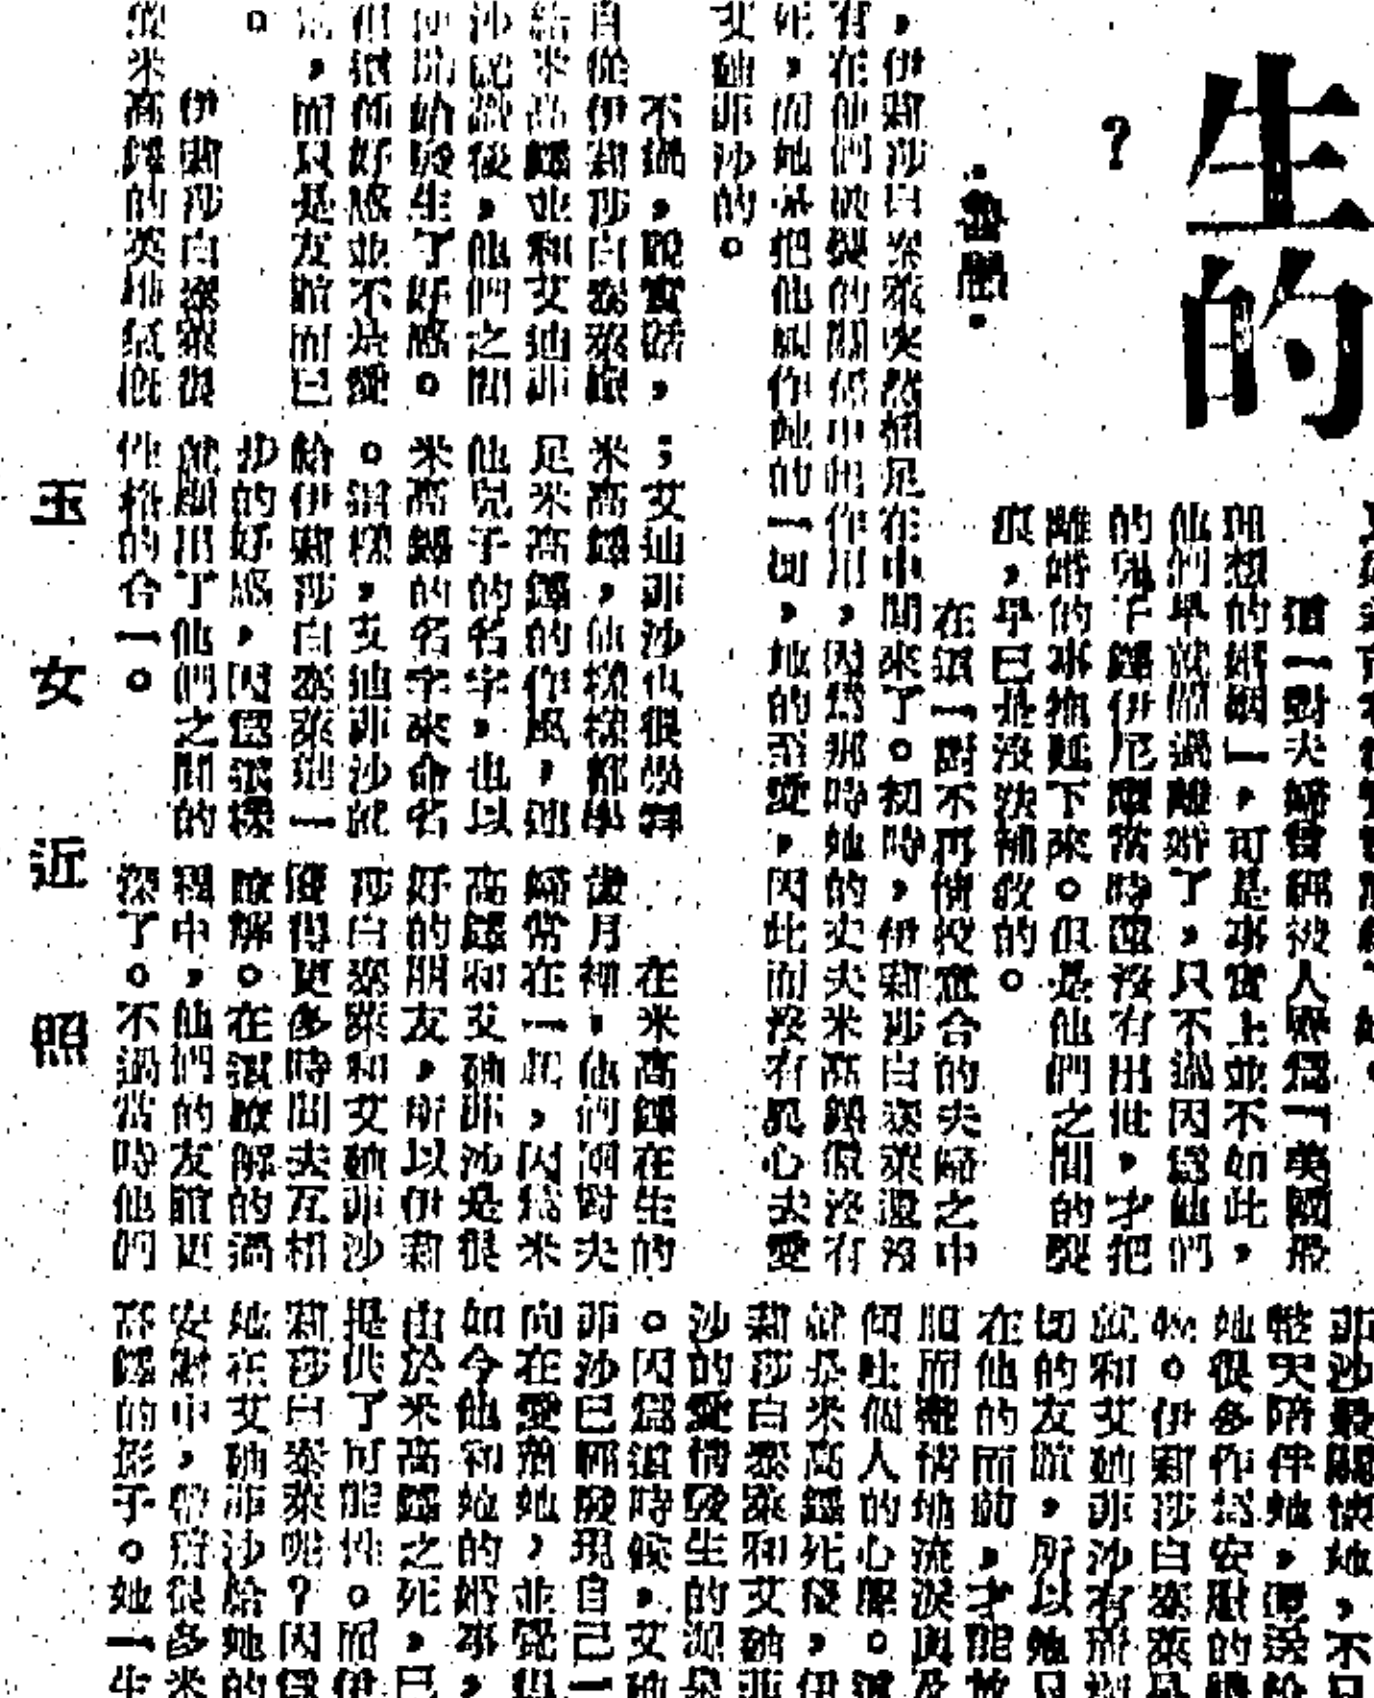 生的
?
這一對夫婦曾經被人喚爲「美國最
理想的婚姻」,可是事實上並不如此,
他們早就鬧過離婚了,只不過因爲他們
的兒子鍾伊尼當時還沒有出世,才把
離婚的事拖延下來。但是他們之間的裂
痕,早已是沒法補救的。
在這一對不再情投意合的夫婦之中
,伊莉莎白泰萊突然插足在中間來了。初時,伊莉莎白泰萊還沒
有在他們破裂的關係中起作用,因爲那時她的丈夫米高鍾還沒有
死,而她是把他視作她的一切,她的至愛,因此而沒有異心去愛
艾迪菲沙的。
不過,說實話,
自從伊莉莎白泰萊嫁
給米高鍾並和艾迪菲
沙認識後,他們之間
便開始發生了好感。
但這種好感並不是愛
情,而只是友誼而已
。
伊莉莎白泰萊很
像米高鍾的英雄氣概
;艾迪菲沙也很崇拜
米高鍾,他樣樣都學
足米高鍾的作風,連
他兒子的名字,也以
米高鍾的名字來命名
。這樣,艾迪菲沙就
給伊莉莎白泰萊進一
步的好感,因爲這樣
就顯出了他們之間的
性格的合一。
在米高鍾在生的
歲月裡,他們兩對夫
婦常在一起,因爲米
高鍾和艾迪菲沙是很
好的朋友,所以伊莉
莎白泰萊和艾迪菲沙
獲得更多時間去互相
瞭解。在這瞭解的過
程中,他們的友誼更
深了。不過當時他們
菲沙最關懷她,不只
整天陪伴她,還送給
她很多作爲安慰的禮
物。伊莉莎白泰萊早
就和艾迪菲沙有密切
切的友誼,所以她只
在他的面前,才能放
胆而盡情地流淚與及
傾吐個人的心聲。這
就是米高鍾死後,伊
莉莎白泰萊和艾迪菲
沙的愛情發生的源泉
。因爲這時候,艾迪
菲沙已經發現自己一
向在愛着她,並覺得
如今他和她的婚事,
由於米高鍾之死,已
提供了可能性。而伊
莉莎白泰萊呢?因爲
她在艾迪菲沙給她的
安慰中,帶着很多米
高鍾的影子。她一生
玉女近照